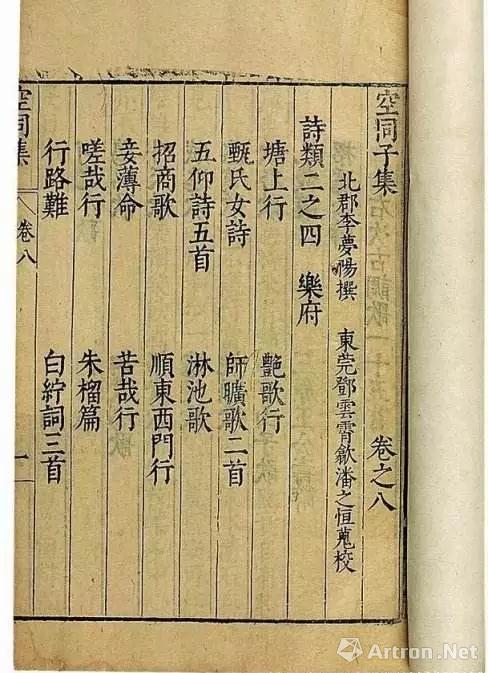 空同子集 卷之八
北郡李夢陽撰 東莞鄧雲霄歙潘之恒蒐校
詩類二之四 樂府
塘上行 艷歌行
甄氏女詩 師曠歌二首
五仰詩五首 淋池歌
招商歌 順東西門行
妾薄命 苦哉行
嗟哉行 朱榴篇
行路難 白紵詞三首
空同集 卷八 一
Artron.Net